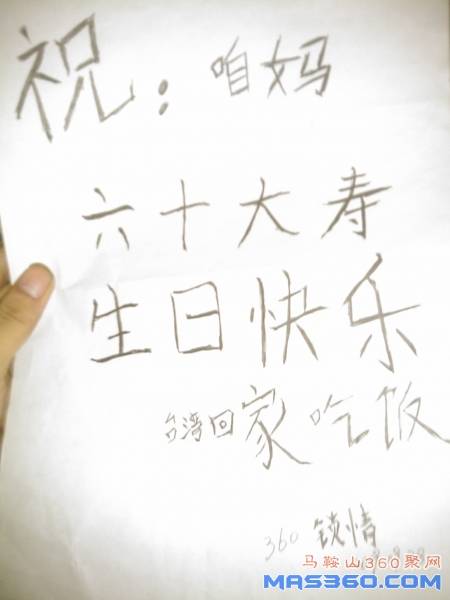 祝：咱妈
六十大寿
生日快乐
台湾回家吃饭
360 锁情
马鞍山360聚网
MAS360.COM